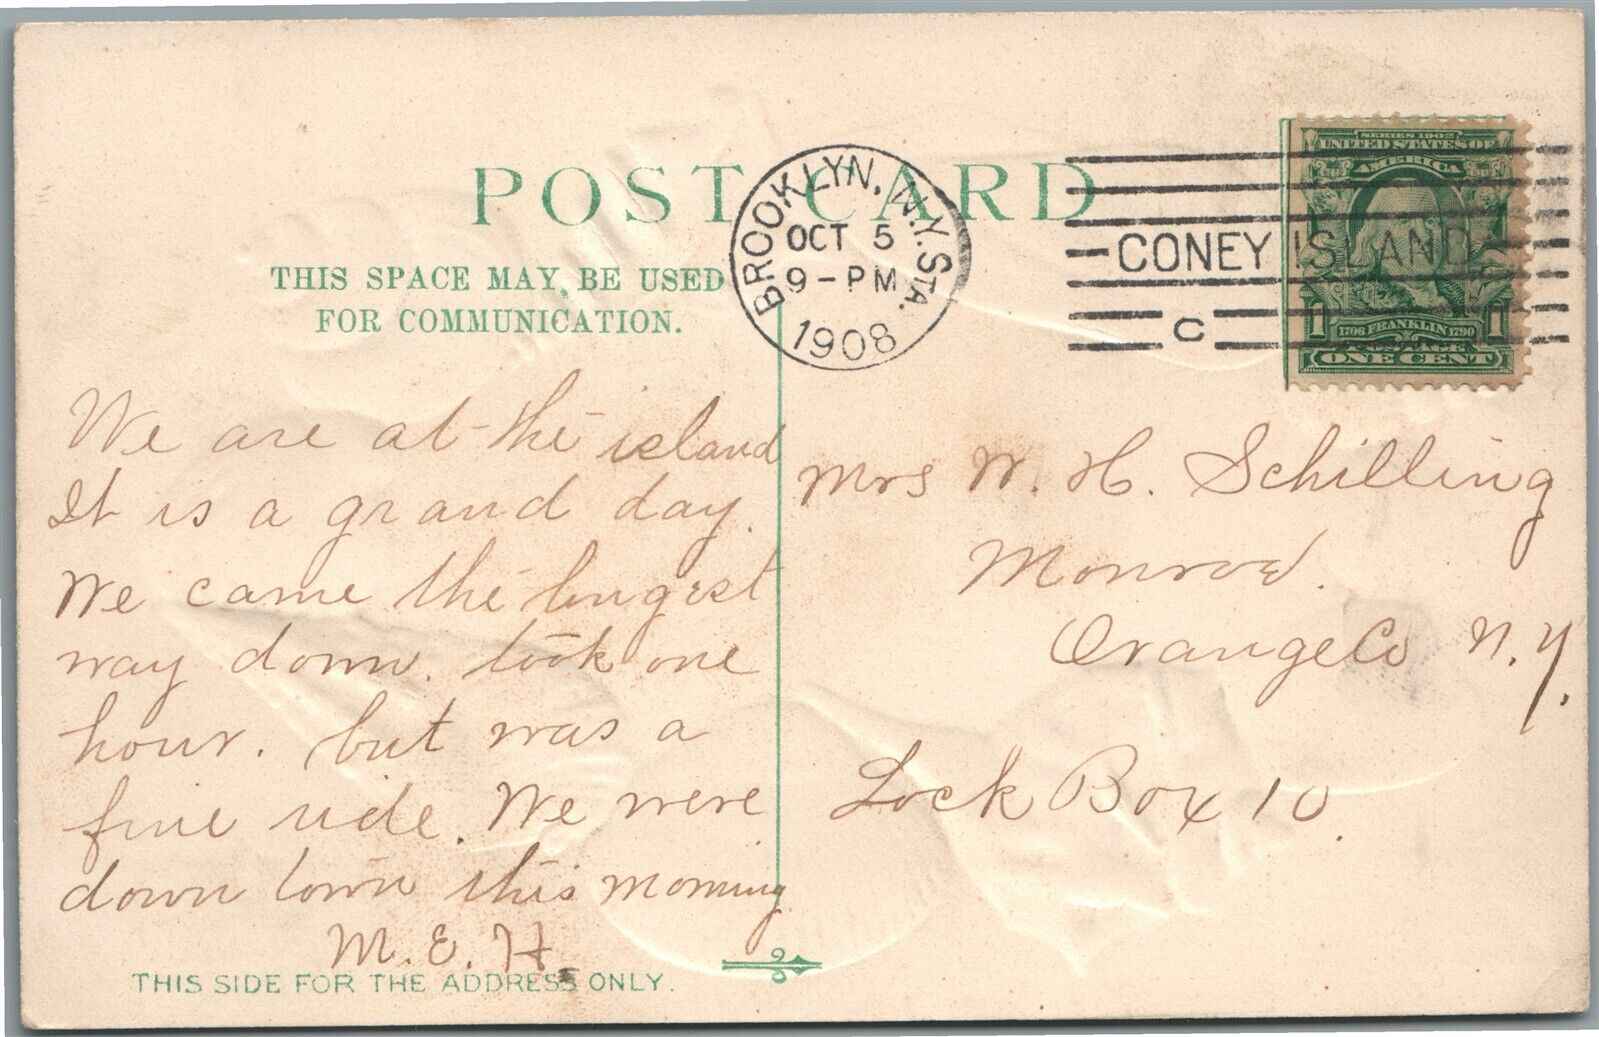 POST CARD
THIS SPACE MAY BE USED
FOR COMMUNICATION.
BROOKLYN, N.Y. STA.
OCT 5
9-PM
1908
CONEY ISLAND
C
SERIES 1902
UNITED STATES OF
AMERICA
1 1706 FRANKLIN 1790 1
POSTAGE
ONE CENT
We are at the island
It is a grand day.
We came the longest
way down. took one
hour. but was a
fine ride. We were
down town this morning
M. E. H.
Mrs W. H. Schilling
Monroe.
Orange Co N.Y.
Lock Box 10.
THIS SIDE FOR THE ADDRESS ONLY.